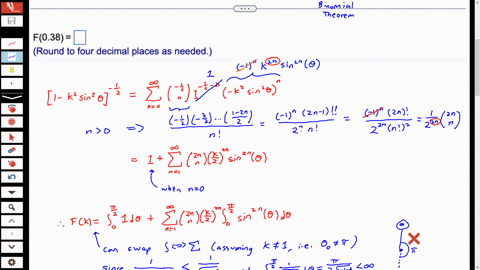 Binomial
Theorem
F(0.38) =
(Round to four decimal places as needed.)
1 (-1)^n k^{2n} sin^{2n}(θ)
[1-k² sin²θ]^{-1/2} = Σ_{n=0}^{∞} (-1/2 n) 1^{-1/2-n} (-k² sin²θ)^n
n>0 => (-1/2)(-3/2)…(1-2n/2) / n! = (-1)^n (2n-1)!! / 2^n n! = (-1)^n (2n)! / 2^{2n} (n!)² = 1/2^{2n} (2n n)
= 1 + Σ_{n=1}^{∞} (2n n)(k/2)^{2n} sin^{2n}(θ)
when n=0
∴ F(k) = ∫_0^{π/2} 1 dθ + Σ_{n=1}^{∞} (2n n)(k/2)^{2n} ∫_0^{π/2} sin^{2n}(θ) dθ
can swap ∫ <=> Σ (assuming k≠1, i.e. θ₀≠π)
π
since